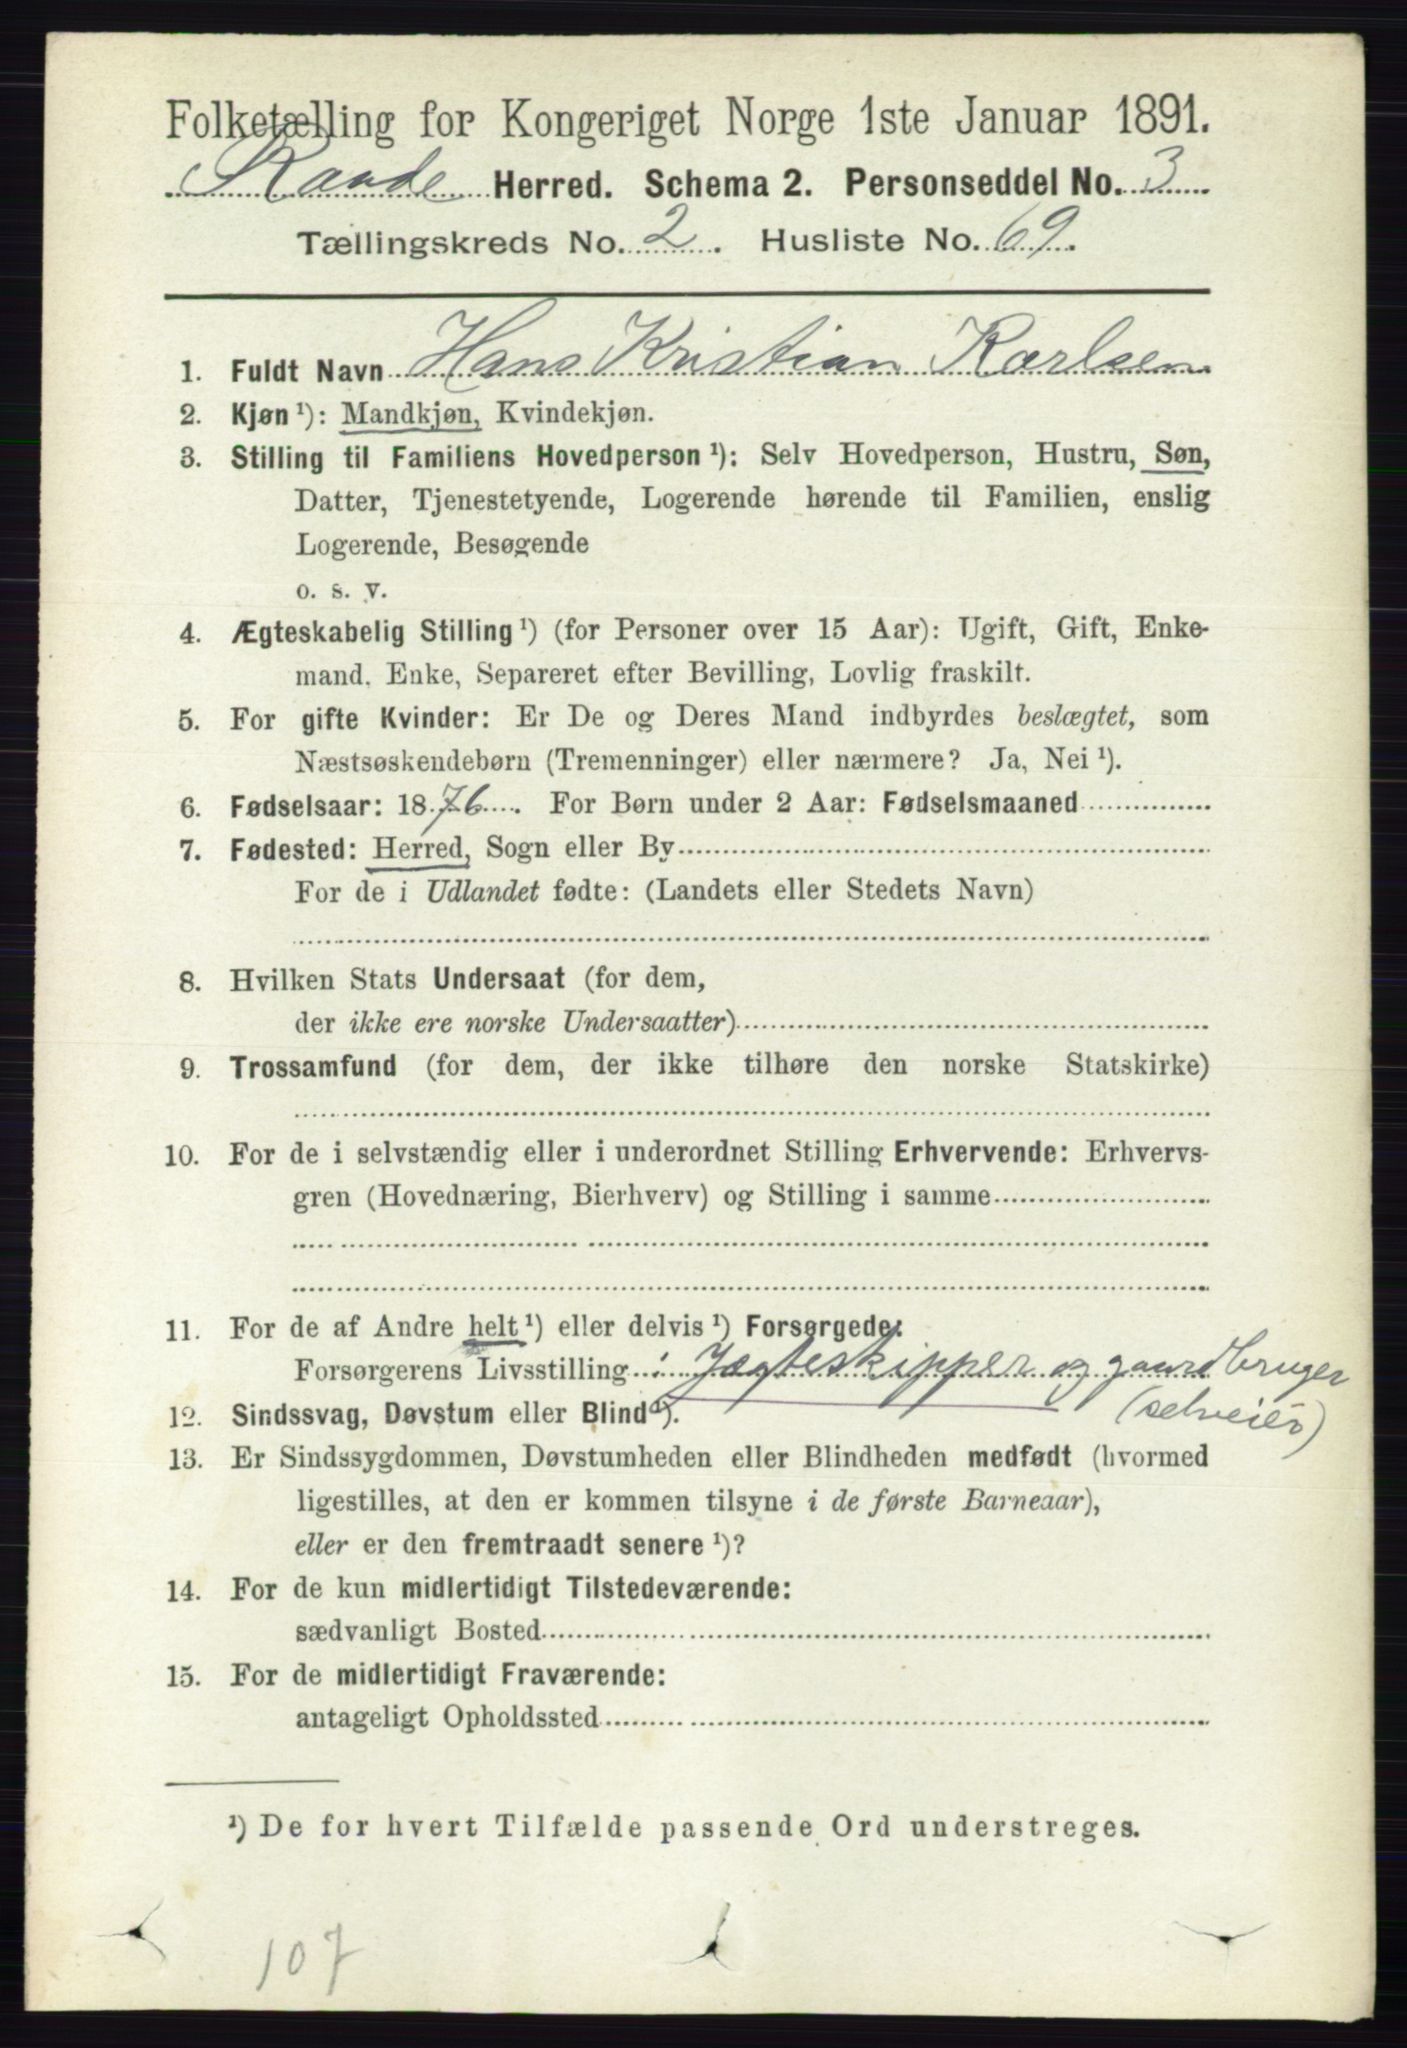 Folketælling for Kongeriget Norge 1ste Januar 1891.
Raade Herred. Schema 2. Personseddel No. 3
Tællingskreds No. 2. Husliste No. 69.
1. Fuldt Navn Hans Kristian Karlsen
2. Kjøn ¹): Mandkjøn, Kvindekjøn.
3. Stilling til Familiens Hovedperson ¹): Selv Hovedperson, Hustru, Søn,
Datter, Tjenestetyende, Logerende hørende til Familien, enslig
Logerende, Besøgende
o. s. v.
4. Ægteskabelig Stilling ¹) (for Personer over 15 Aar): Ugift, Gift, Enke-
mand, Enke, Separeret efter Bevilling, Lovlig fraskilt.
5. For gifte Kvinder: Er De og Deres Mand indbyrdes beslægtet, som
Næstsøskendebørn (Tremenninger) eller nærmere? Ja, Nei ¹).
6. Fødselsaar: 1876. For Børn under 2 Aar: Fødselsmaaned
7. Fødested: Herred, Sogn eller By
For de i Udlandet fødte: (Landets eller Stedets Navn)
8. Hvilken Stats Undersaat (for dem,
der ikke ere norske Undersaatter)
9. Trossamfund (for dem, der ikke tilhøre den norske Statskirke)
10. For de i selvstændig eller i underordnet Stilling Erhvervende: Erhvervs-
gren (Hovednæring, Bierhverv) og Stilling i samme
11. For de af Andre helt ¹) eller delvis ¹) Forsørgede:
Forsørgerens Livsstilling: Jægteskipper og gaardbruger
(selveier)
12. Sindssvag, Døvstum eller Blind ¹).
13. Er Sindssygdommen, Døvstumheden eller Blindheden medfødt (hvormed
ligestilles, at den er kommen tilsyne i de første Barneaar),
eller er den fremtraadt senere ¹)?
14. For de kun midlertidigt Tilstedeværende:
sædvanligt Bosted
15. For de midlertidigt Fraværende:
antageligt Opholdssted
¹) De for hvert Tilfælde passende Ord understreges.
107